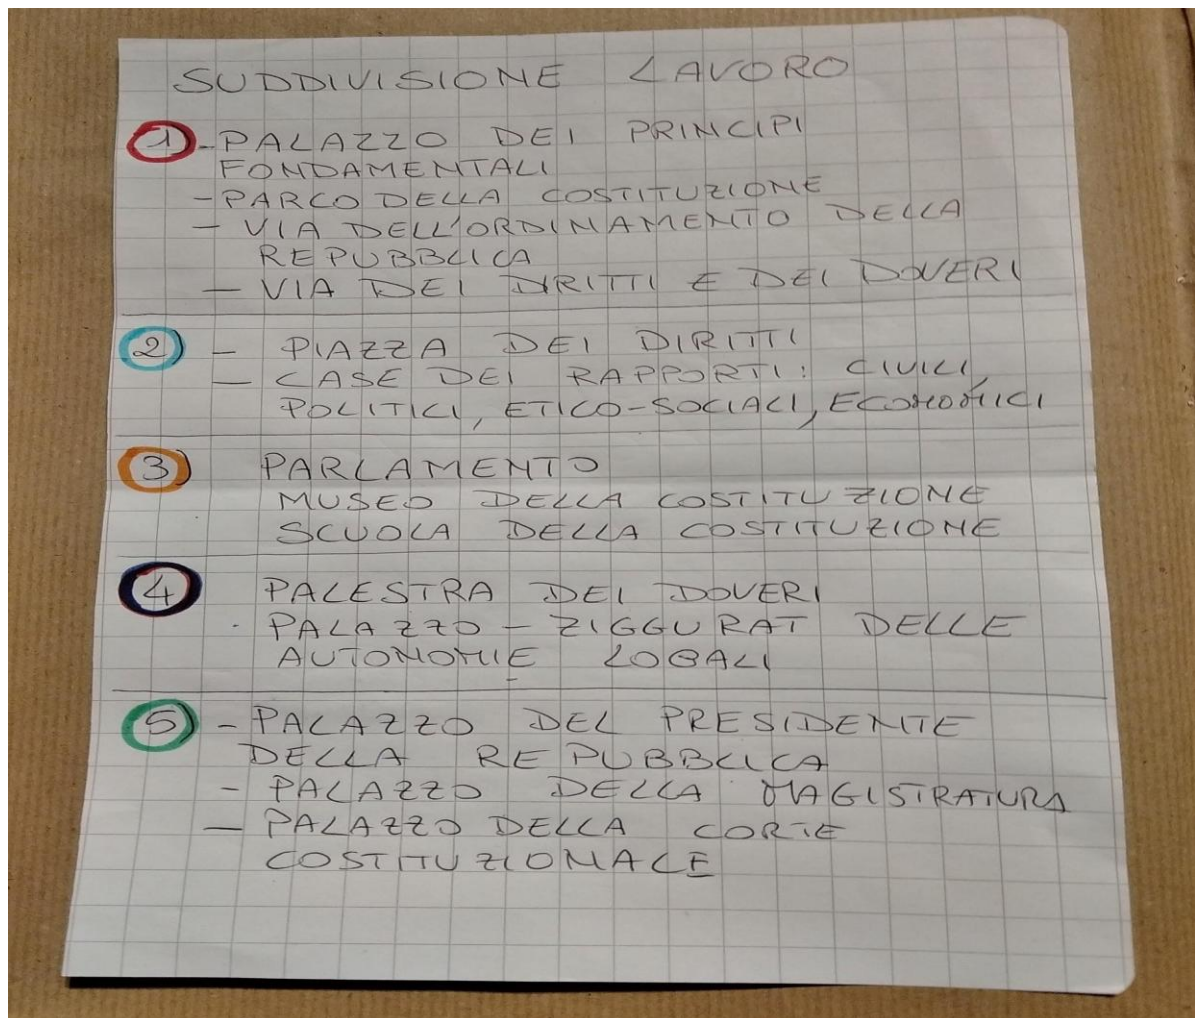 SUDDIVISIONE LAVORO
1 - PALAZZO DEI PRINCIPI
FONDAMENTALI
- PARCO DELLA COSTITUZIONE
- VIA DELL'ORDINAMENTO DELLA
REPUBBLICA
- VIA DEI DIRITTI E DEI DOVERI
2) - PIAZZA DEI DIRITTI
- CASE DEI RAPPORTI: CIVILI,
POLITICI, ETICO-SOCIALI, ECONOMICI
3) PARLAMENTO
MUSEO DELLA COSTITUZIONE
SCUOLA DELLA COSTITUZIONE
4) PALESTRA DEI DOVERI
PALAZZO - ZIGGURAT DELLE
AUTONOMIE LOCALI
5) - PALAZZO DEL PRESIDENTE
DELLA REPUBBLICA
- PALAZZO DELLA MAGISTRATURA
- PALAZZO DELLA CORTE
COSTITUZIONALE